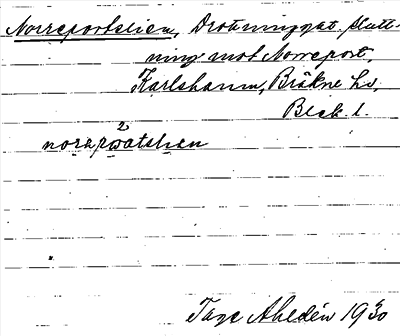 Norreportslien, Drottninggat. slutt-
ning mot Norreport,
Karlshamn, Bräkne hd,
Blek. l.
2
norapoatslien
Tage Ahldén 1930